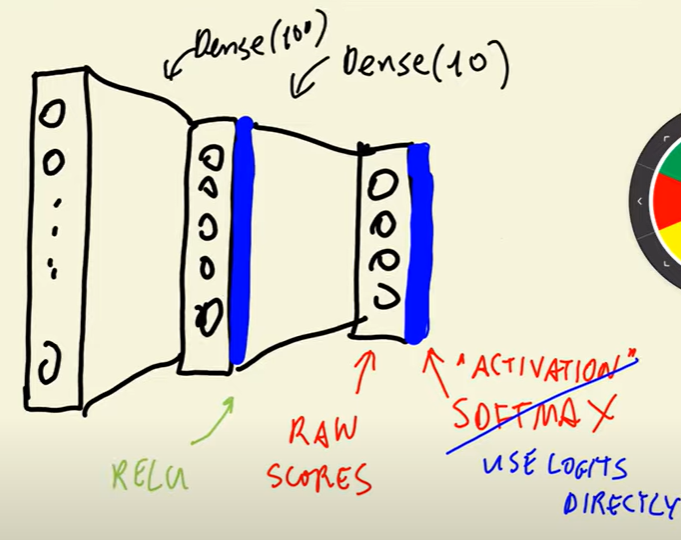 Dense(100)
Dense(10)
RELU
RAW
SCORES
"ACTIVATION"
SOFTMAX
USE LOGITS
DIRECTLY